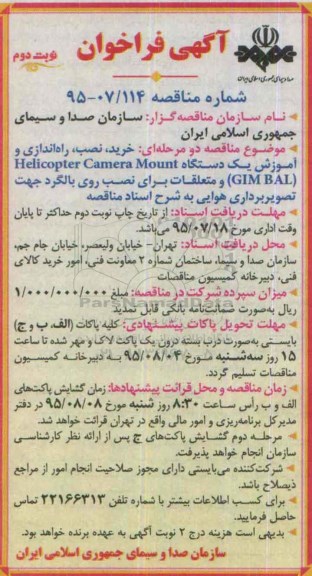 آگهی فراخوان
نوبت دوم
صدا و سیمای جمهوری اسلامی ایران
شماره مناقصه ۹۵-۰۷/۱۱۴
نـام سـازمان مناقصه گـزار: سـازمان صـدا و سـیمای
جمهوری اسلامی ایران
موضـوع مناقصه دو مرحله‌ای: خرید، نصب، راه‌اندازی و
آمـوزش یـک دستگاه Helicopter Camera Mount
(GIM BAL) و متعلقات بـرای نصـب روی بالگرد جهت
تصویربرداری هوایی به شرح اسناد مناقصه
مهلـت دریافت اسـناد: از تاریخ چاپ نوبت دوم حداکثر تا پایان
وقت اداری مورخ ۹۵/۰۷/۱۸ می‌باشد.
محل دریافت اسـناد: تهران- خیابان ولیعصر، خیابان جام جم،
سازمان صدا و سیما، ساختمان شماره ۲ معاونت فنی، امور خرید کالای
فنی، دبیرخانه کمیسیون مناقصات
میزان سپرده شرکت در مناقصه: مبلغ ۱/۰۰۰/۰۰۰/۰۰۰
ریال به‌صورت ضمانت‌نامه بانکی قابل تمدید
مهلت تحویل پاکات پیشنهادی: کلیه پاکات (الف، ب و ج)
بایستـی به‌صورت درب بسته درون یک پاکت لاک و مهر شده تا ساعت
۱۵ روز سه‌شنبه مـورخ ۹۵/۰۸/۰۴ بـه دبیرخانـه کمیسیون
مناقصات تسلیم گردد.
زمان مناقصه و محل قرائت پیشنهادها: زمان گشایش پاکت‌های
الف و ب رأس ساعت ۸:۳۰ روز شنبه مورخ ۹۵/۰۸/۰۸ در دفتر
مدیرکل برنامه‌ریزی و امور مالی واقع در تهران قرائت خواهد شد.
مرحلـه دوم گشـایش پاکت‌های ج پس از ارائه نظر کارشناسی
سازمان انجام خواهد پذیرفت.
شرکت‌کننده می‌بایستی دارای مجوز صلاحیت انجام امور از مراجع
ذیصلاح باشد.
برای کسـب اطلاعات بیشتر با شماره تلفن ۲۲۱۶۶۳۱۳ تماس
حاصل فرمایید.
بدیهی است هزینه درج ۲ نوبت آگهی به عهده برنده خواهد بود.
سازمان صدا و سیمای جمهوری اسلامی ایران